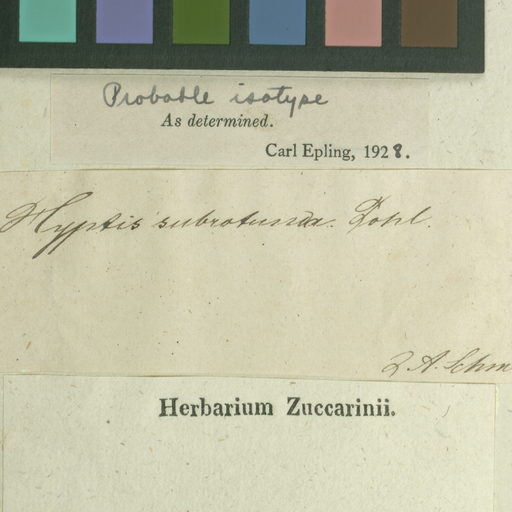 Probable isotype
As determined.
Carl Epling, 1928.
Hyptis subrotunda. Pohl.
A. Schm
Herbarium Zuccarinii.